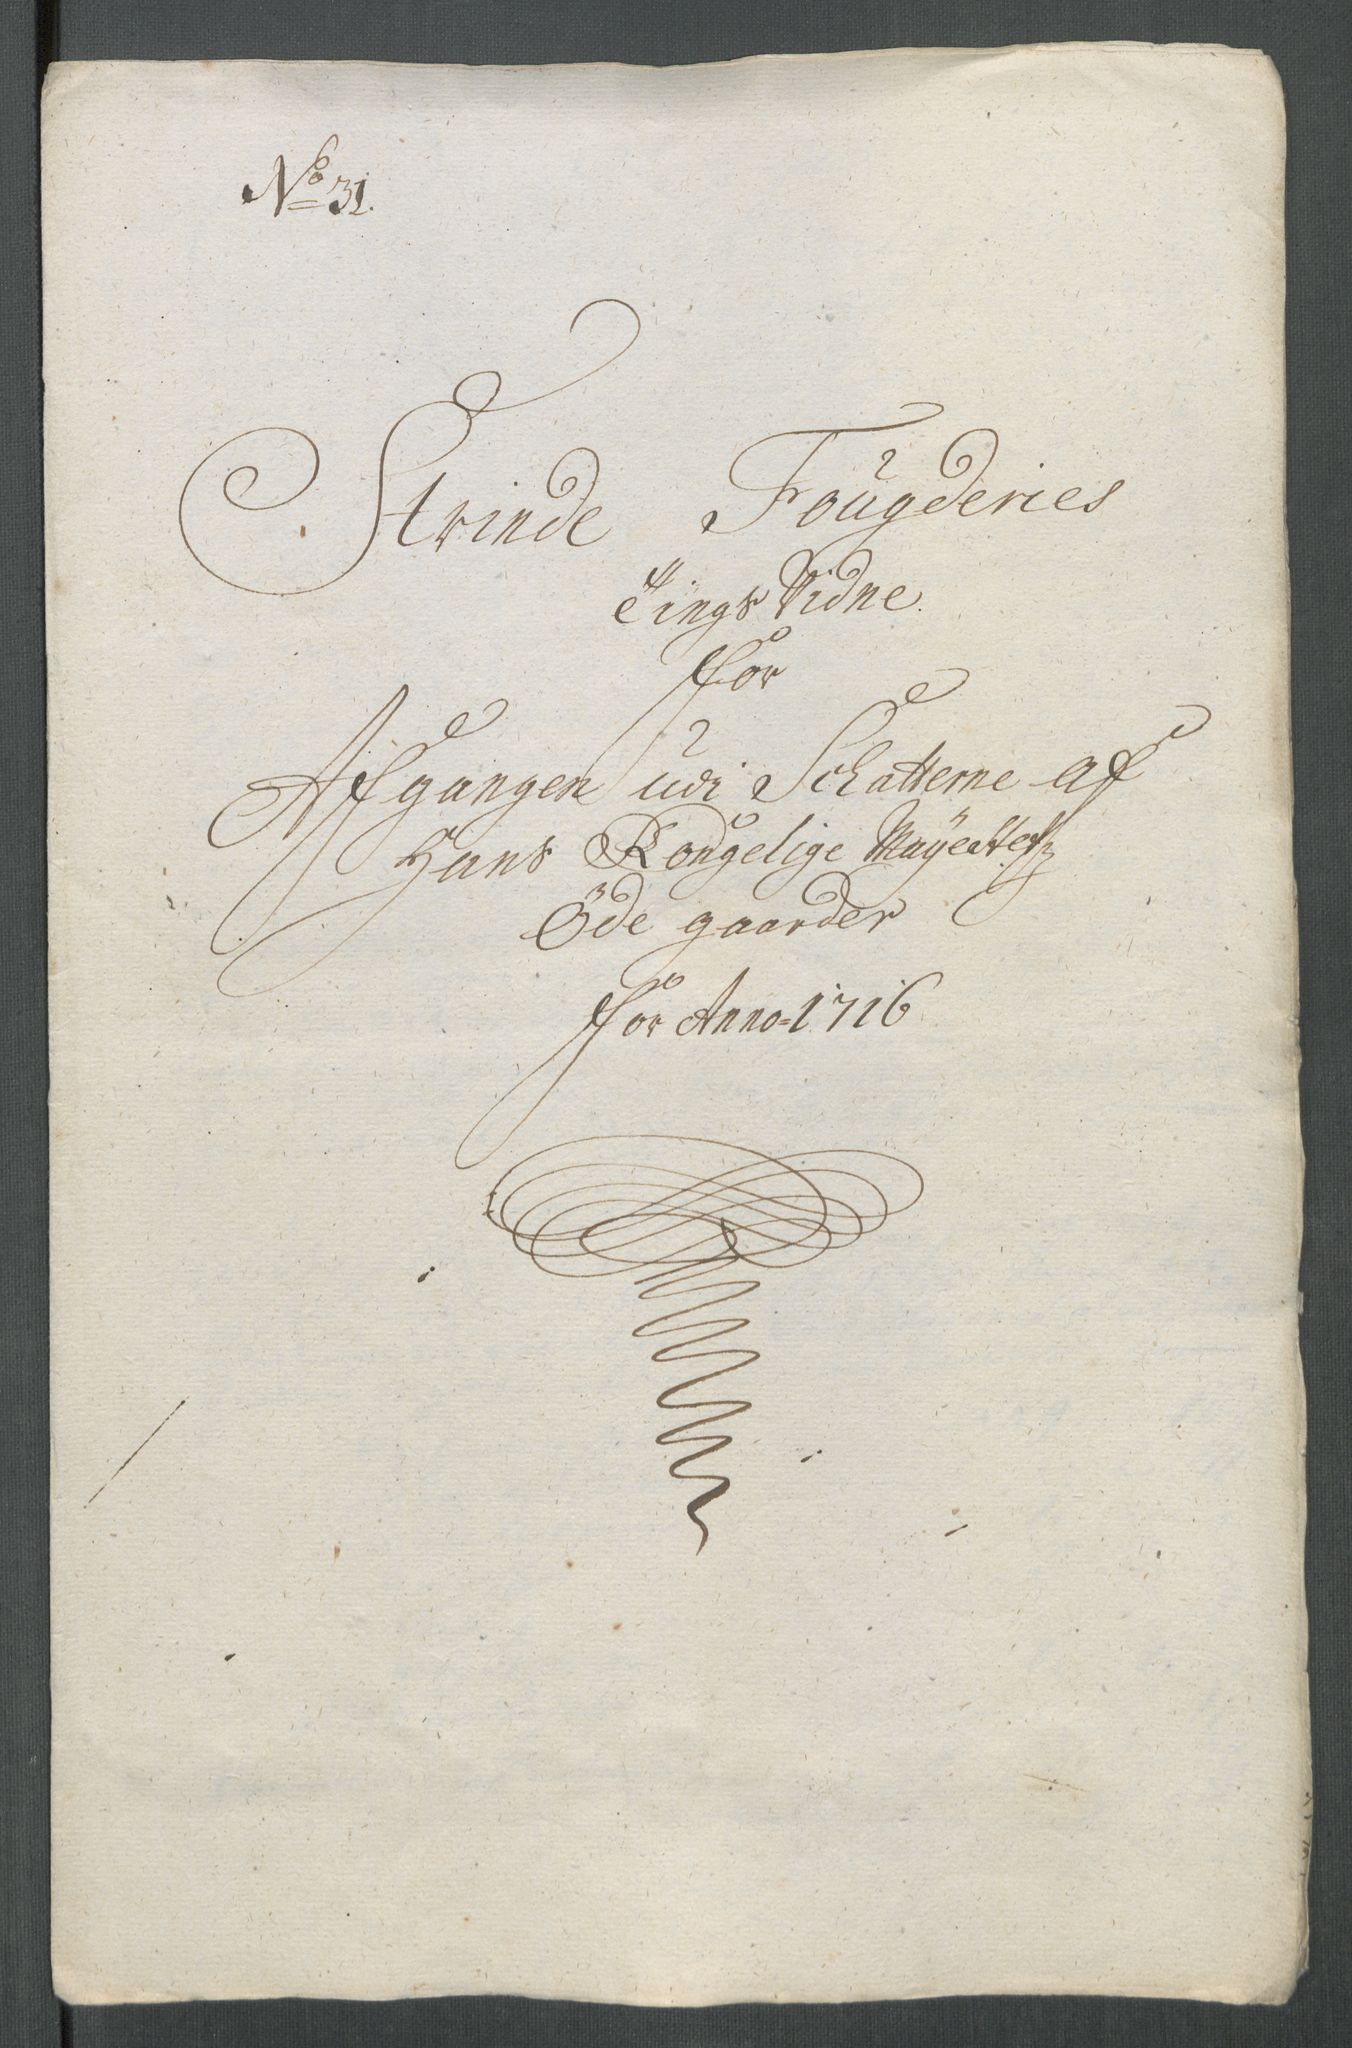 No 31.
Strinde Fougderies
Tings Vidne
for
Afgangen udi Schatterne af
Hans Kongelige Mayestetz
Öde gaarder
for Anno 1716